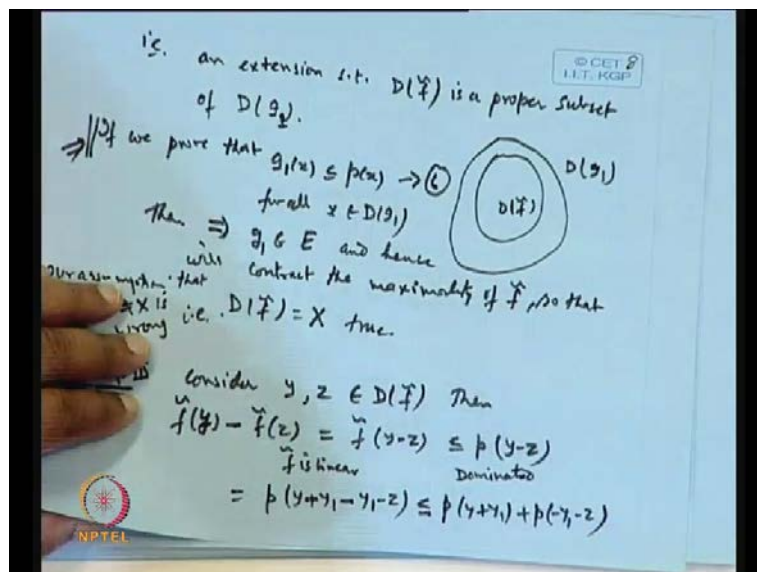 i.e. an extension s.t. D(f̃) is a proper subset
© CET 8
I.I.T. KGP
of D(g₁).
⇒ || If we prove that
g₁(x) ≤ p(x) → ⑥
for all x ∈ D(g₁)
D(g₁)
D(f̃)
Then ⇒ g₁ ∈ E and hence
will contract the maximality of f̃, so that
our assumption that
≠ X is
wrong i.e. D(f̃) = X true.
Consider y, z ∈ D(f̃) Then
f̃(y) − f̃(z) = f̃(y−z) ≤ p(y−z)
f̃ is linear Dominated
= p(y+y₁−y₁−z) ≤ p(y+y₁) + p(−y₁−z)
NPTEL